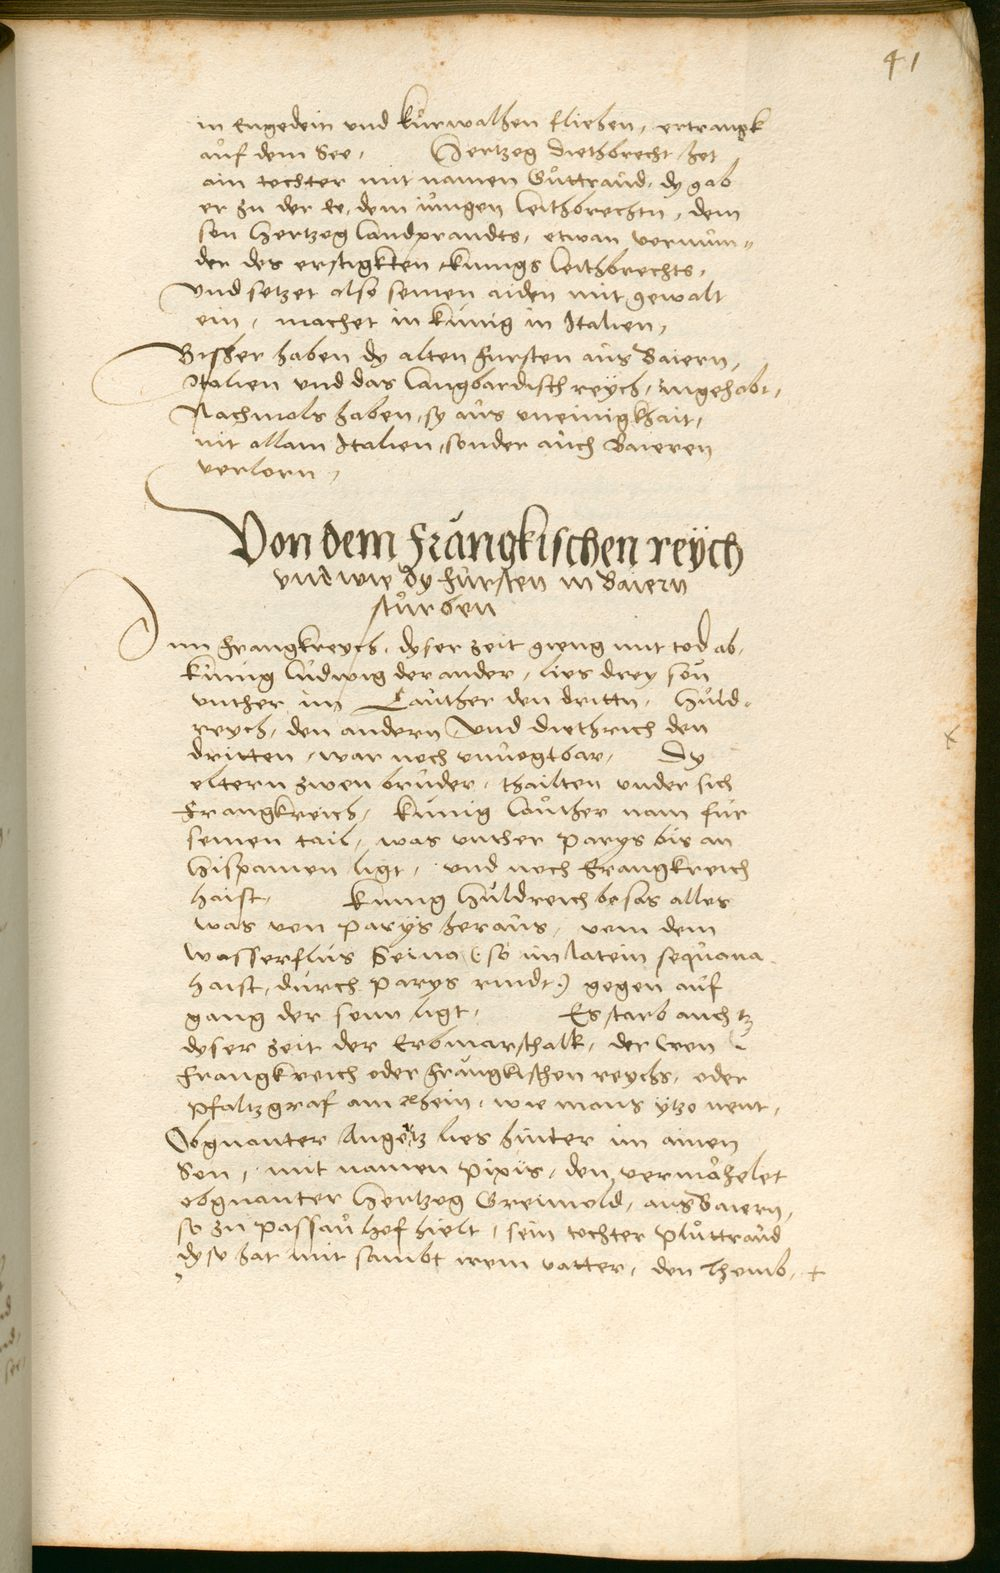 41
in Engedein und kurwalhen fliehen, ertrangk
auf dem See, Hertzog diethbrecht het
ain tochter mit namen Guttraud, dy gab
er zu der Ee, dem jungen leithbrechtn, dem
son Hertzog landprandts, etwan vermun„
der des erstigkten kunigs leithbrechts,
und setzet also seinen aiden mit gewalt
ein, machet in kunig in Italien,
Bisher haben dy alten fursten aus Baiern,
Italien und das langbardisch reych, ingehabt,
Nachmols haben, sy aus uneinigkhait,
nit allain Italien, sonder auch Baieren
verlorn,
Von dem Frangkischen reÿch
und wie dy fursten in Baiern
sturben
Inn Frangkreych, dyser zeit gieng mit tod ab,
kunig ludwig der ander, lies drey son
unther im Lauther den drittn, Huld„
reych, den andern und diethrich den
dritten, war noch unvogtbar, Dy
eltern zwen bruder, thailten under sich
Frangkreich, kunig lauther nam fur
seinen tail, was unther Parys bis an
Hispanien ligt, und noch Frangkreich
haist, kunig Huldreich besas alles
was von Parÿs heraus, vom dem
wasserflus Seina (so im latein sequana
haist, durch Parys rindt) gegen auf
gang der sonn ligt, Es starb auch tz
dyser zeit der Erbmarschalk, der Cron
Frangkreich oder Frangkischen reychs, oder
Pfaltzgraf am Rhein, wie mans ytzo nent,
Obgnanter Angetz lies hinter im ainen
Son, mit namen Pipiis, den vermahelet
obgnanter Hertzog Greimold, aus Baiern,
so zu Passau hof hielt, sein tochter Pluttraud
dyse hat mit sambt irem vatter, den Thomb, +